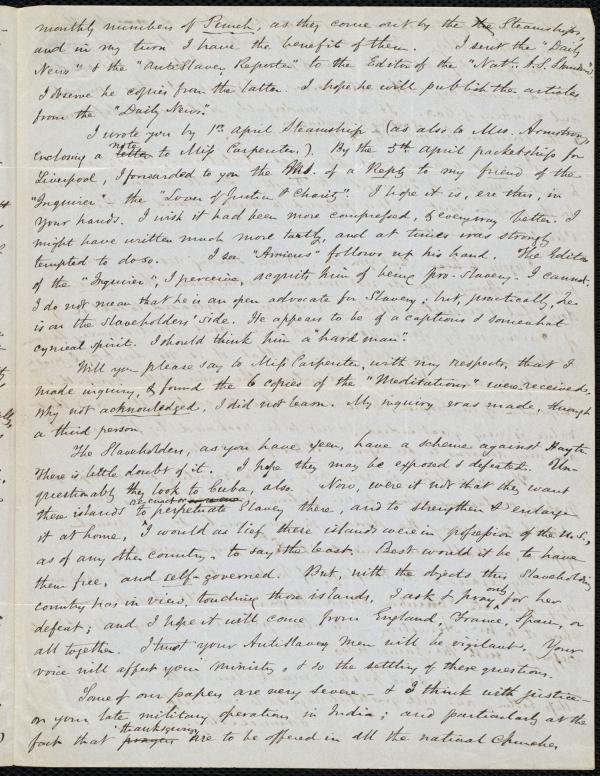 monthly numbers of Punch, as they come out by the Steamships,
and in my turn I have the benefit of them. I sent the "Daily
News" & the "AntiSlavery Reporter" to the Editor of the "Nat^l. A.S. Standard".
I observe he copies from the latter. I hope he will publish the articles
from the "Daily News."
I wrote you by 1^st. April Steamship (as also to Mrs. Armstrong,
enclosing a letter note to Miss Carpenter.). By the 5^th. April packetship for
Liverpool, I forwarded to you the MS. of a Reply to my friend of the
"Inquirer" - the "Lover of Justice & Charity". I hope it is, ere this, in
your hands. I wish it had been more compressed, & everyway better. I
might have written much more tartly, and at times was strongly
tempted to do so. I see "Amicus" follows up his hand. The Editor
of the "Inquirer", I perceive, acquits him of being pro-Slavery. I cannot.
I do not mean that he is an open advocate for Slavery; but, practically, he
is on the Slaveholders' side. He appears to be of a captious & somewhat
cynical spirit. I should think him a "hard man".
Will you please say to Miss Carpenter, with my respects, that I
made inquiry, & found the 6 copies of the "Meditations" were received.
Why not acknowledged, I did not learn. My inquiry was made, through
a third person.
The Slaveholders, as you have seen, have a scheme against Hayti.
There is little doubt of it. I hope they may be exposed & defeated. Un-
questionably they look to Cuba, also. Now, were it not that they want
these islands to perpetuate Slavery there, and to strengthen & enlarge
it at home, I would as lief these islands were in possession of the U.S.,
as of any other country, to say the least. Best would it be to have
them free, and self-governed. But, with the objects this Slaveholding
country has in view, touching those islands, I ask & pray only for her
defeat; and I hope it will come from England, France, Spain, or
all together. I trust your AntiSlavery men will be vigilant. Your
voice will affect your ministry, & so the settling of these questions.
Some of our papers are very severe - & I think with justice -
on your late military operations in India; and particularly at the
fact that prayers thanksgivings are to be offered in all the national Churches